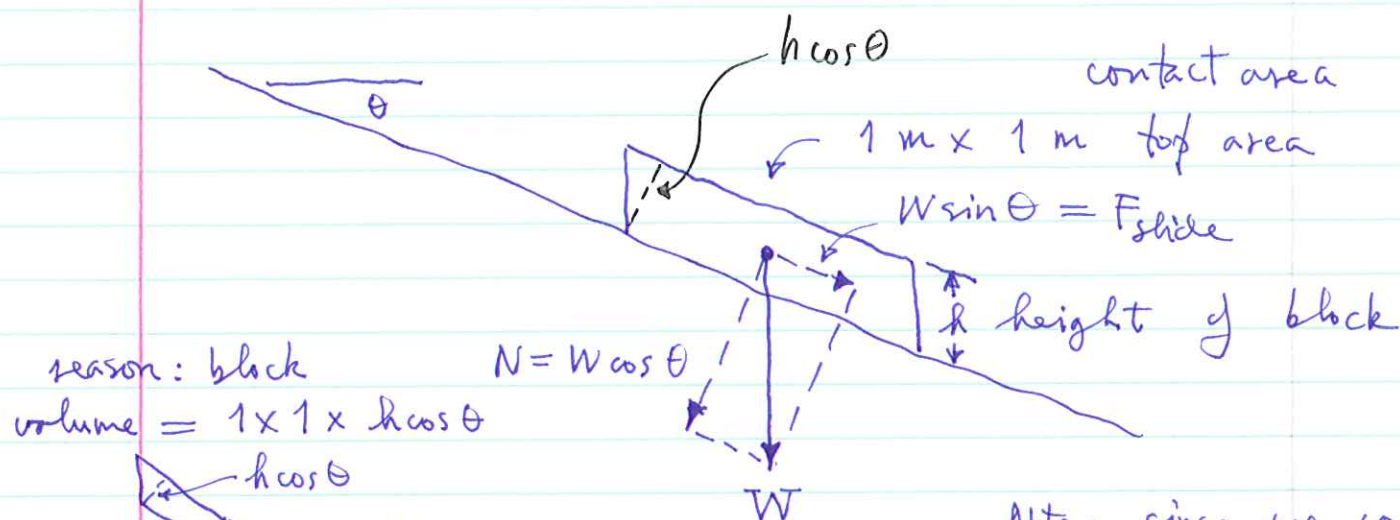 h cos θ
θ
contact area
1 m x 1 m top area
W sin θ = F slide
h height of block
reason: block
volume = 1 x 1 x h cos θ
N = W cos θ
h cos θ
W